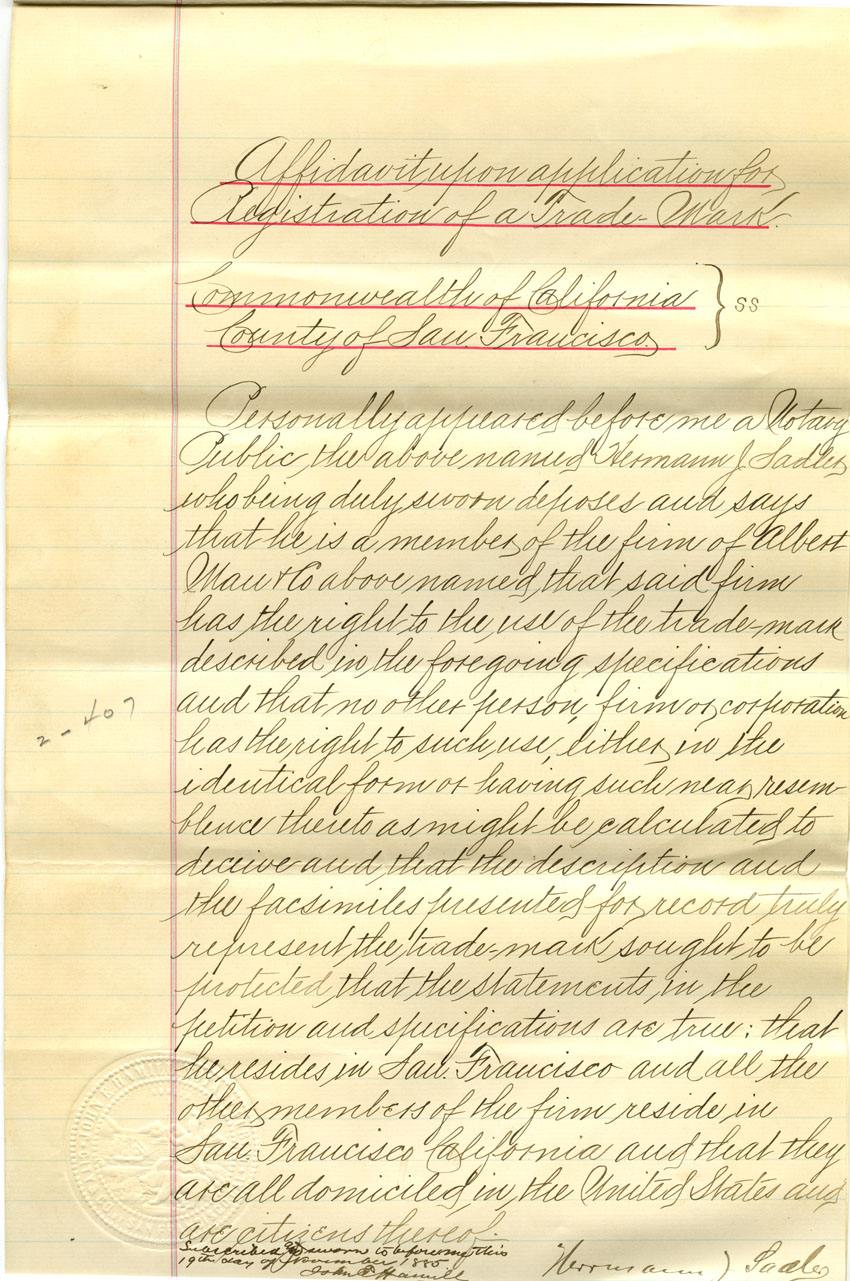 Affidavit upon application for
Registration of a Trade-Mark.
Commonwealth of California
County of San Francisco } ss
Personally appeared before me a Notary
Public, the above named Hermann J. Sadler,
who being duly sworn deposes and says
that he is a member of the firm of Albert
Mau & Co above named, that said firm
has the right to the use of the trade-mark
described in the foregoing specifications
and that no other person, firm or corporation
has the right to such use, either in the
identical form or having such near resem-
blence thereto as might be calculated to
deceive and that the description and
the facsimiles presented for record truly
represent the trade-mark sought to be
protected that the statements in the
petition and specifications are true: that
he resides in San Francisco and all the
other members of the firm reside in
San Francisco California and that they
are all domiciled in the United States and
are citizens thereof.
Subscribed & sworn to before me this
19th day of November 1885
John E Hamill
Herrmann J Sadler
2-407